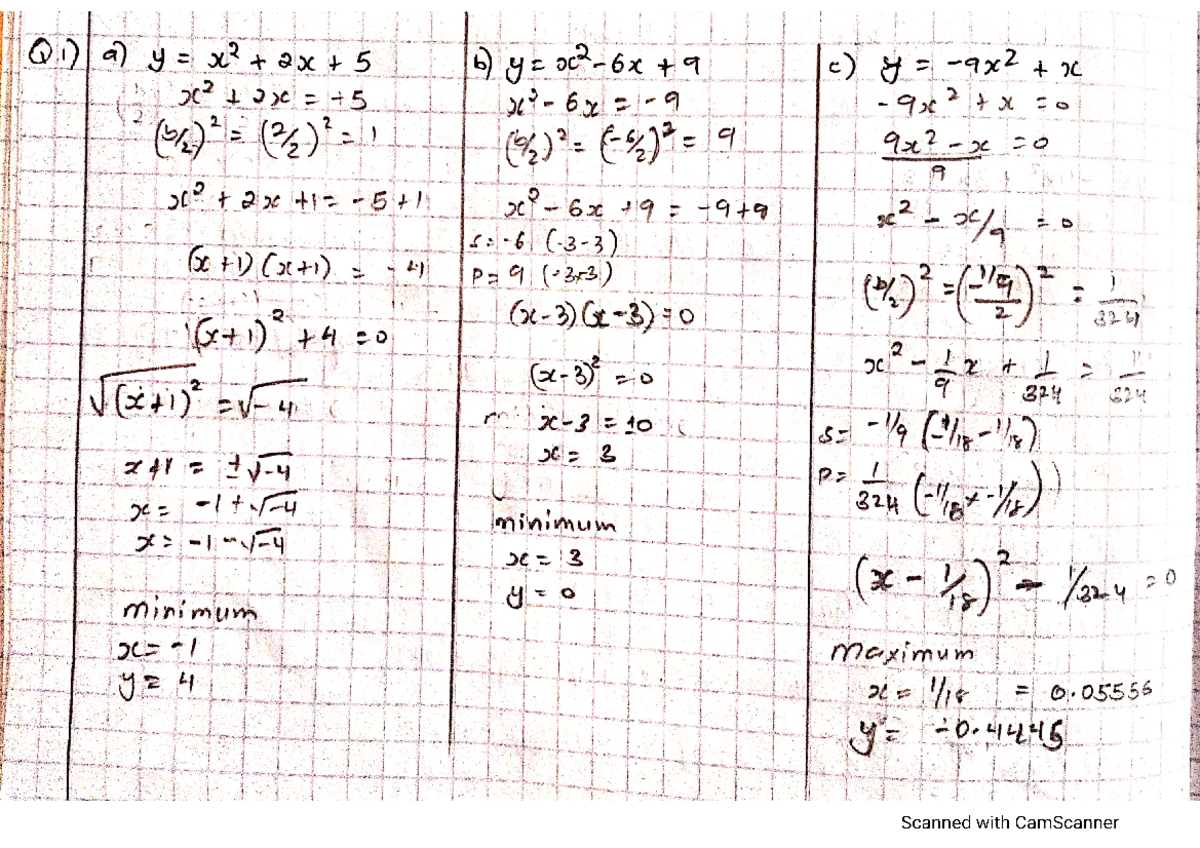 Q.1) a) y = x² + 2x + 5
x² + 2x = -5
(b/2)² = (2/2)² = 1
x² + 2x + 1 = -5 + 1
(x + 1)(x + 1) = -4
(x + 1)² + 4 = 0
√(x+1)² = √-4
x+1 = ±√-4
x = -1 + √-4
x = -1 - √-4
minimum
x = -1
y = 4
b) y = x² - 6x + 9
x² - 6x = -9
(b/2)² = (-6/2)² = 9
x² - 6x + 9 = -9 + 9
S = -6 (-3-3)
P = 9 (-3×-3)
(x-3)(x-3) = 0
(x-3)² = 0
x-3 = ±0
x = 3
minimum
x = 3
y = 0
c) y = -9x² + x
-9x² + x = 0
9x² - x = 0
9
x² - x/9 = 0
(b/2)² = (-1/9 / 2)² = 1/324
x² - 1/9 x + 1/324 = 1/324
S = -1/9 (-1/18 - 1/18)
P = 1/324 (-1/18 × -1/18)
(x - 1/18)² - 1/324 = 0
maximum
x = 1/18 = 0.05556
Scanned with CamScanner